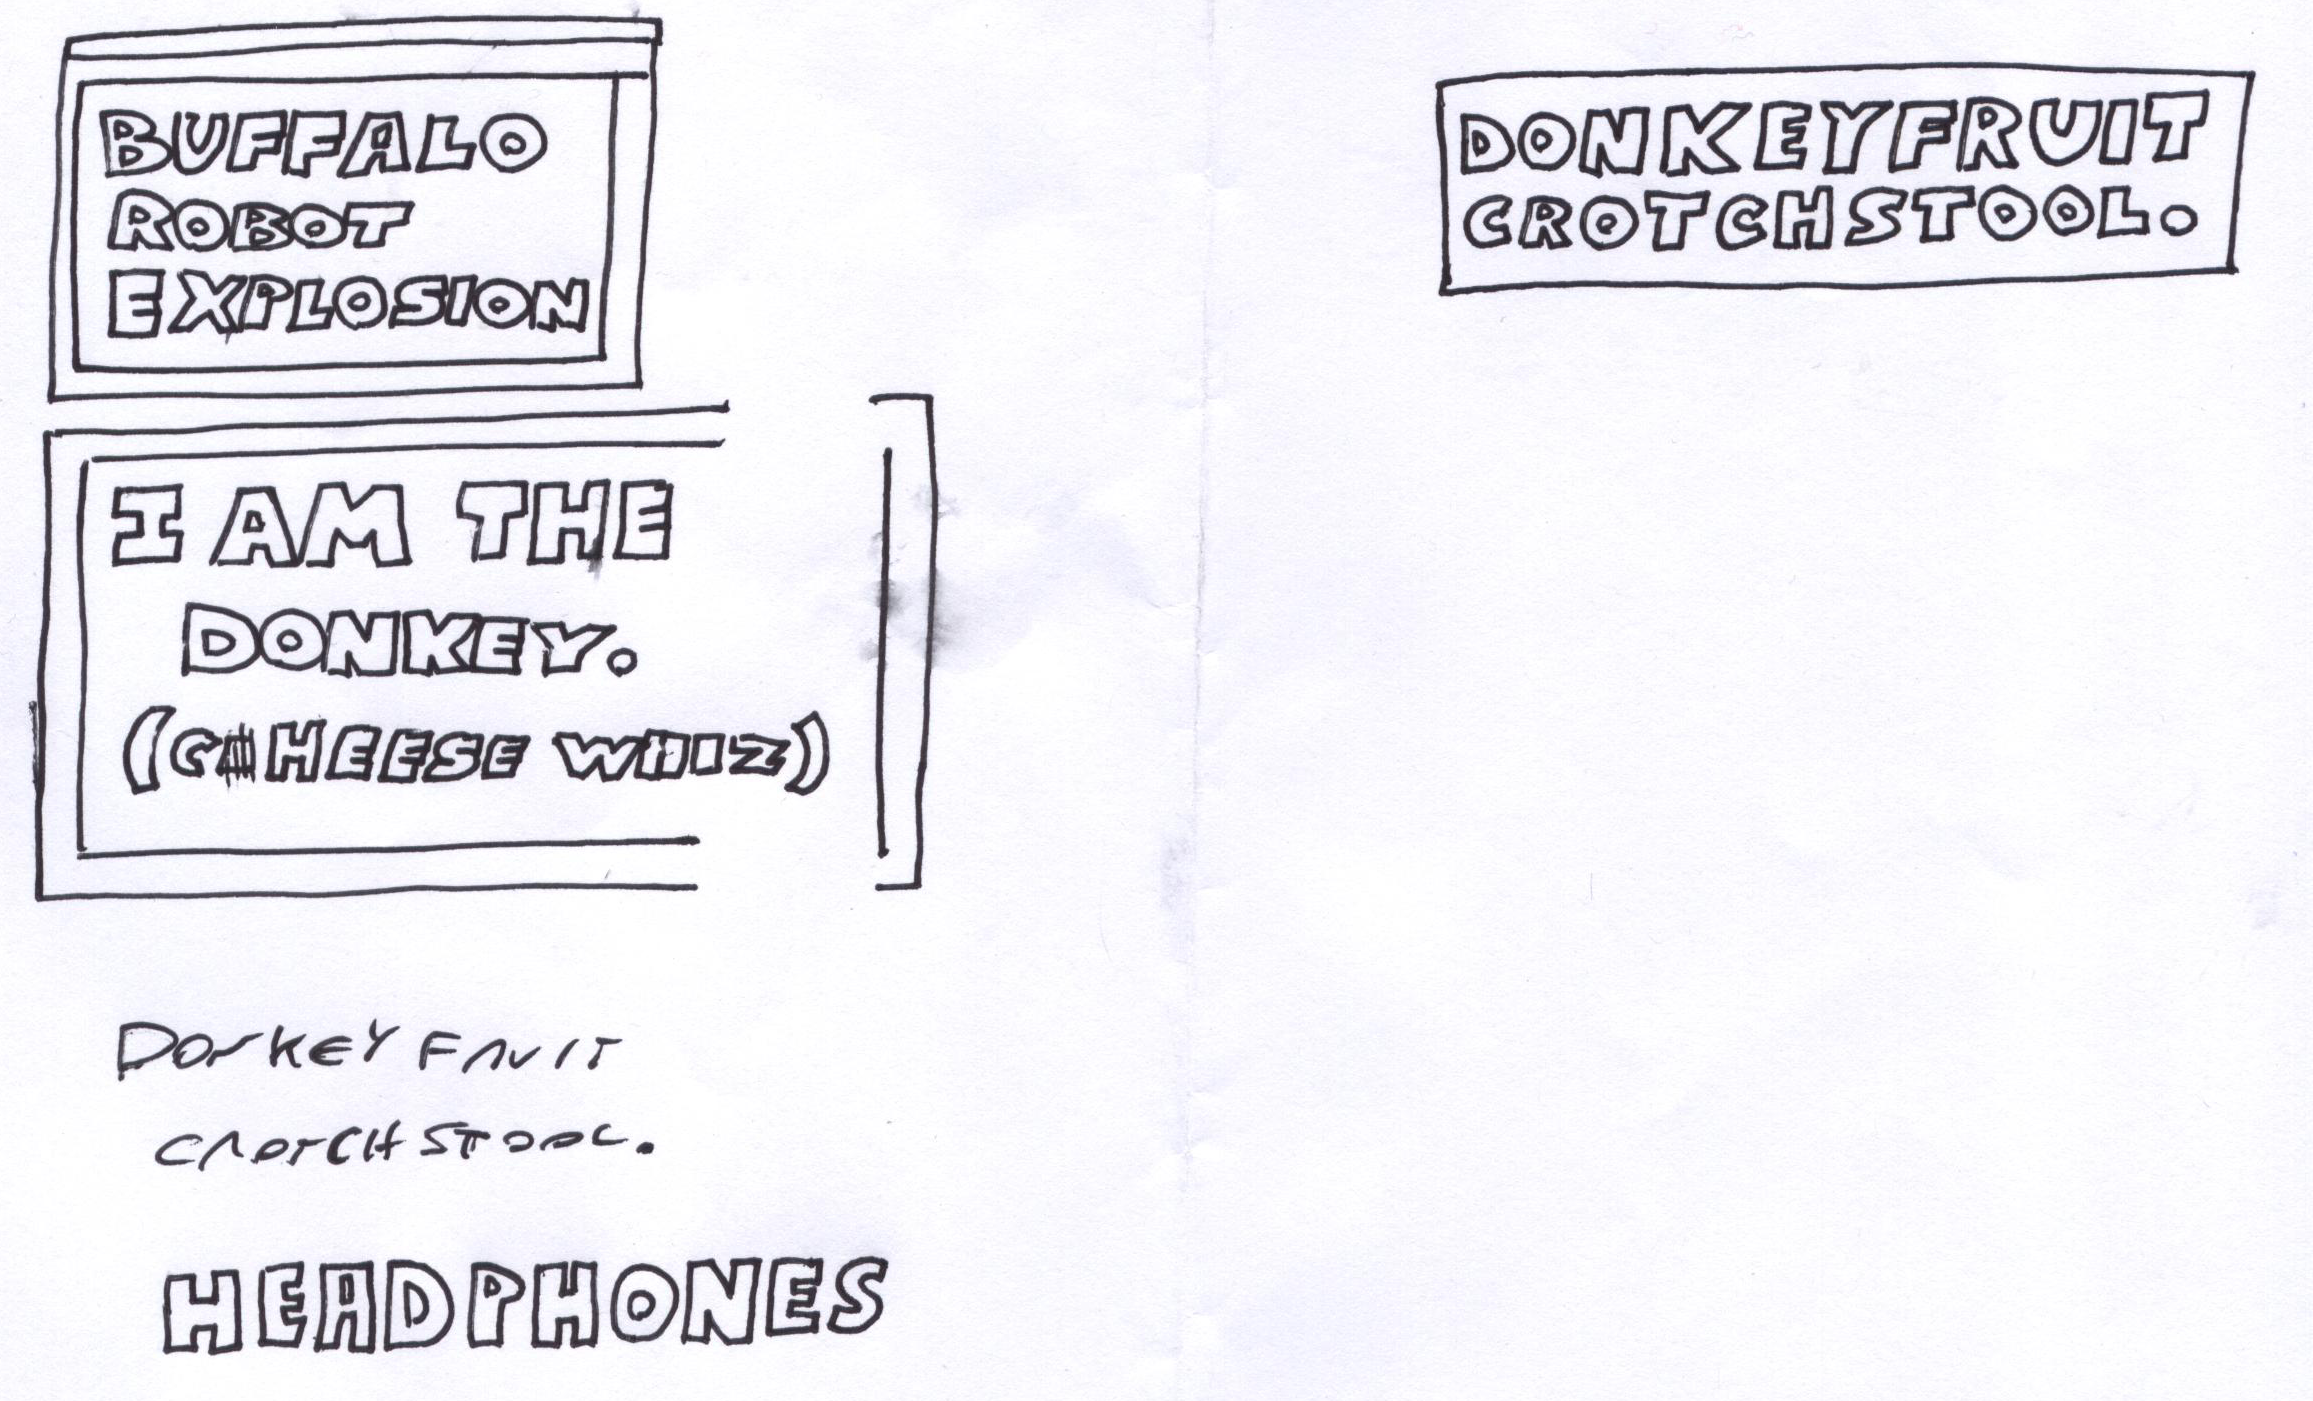 BUFFALO
ROBOT
EXPLOSION
I AM THE
DONKEY.
(CHEESE WHIZ)
DONKEY FRUIT
CROTCH STOOL.
HEADPHONES
DONKEYFRUIT
CROTCHSTOOL.